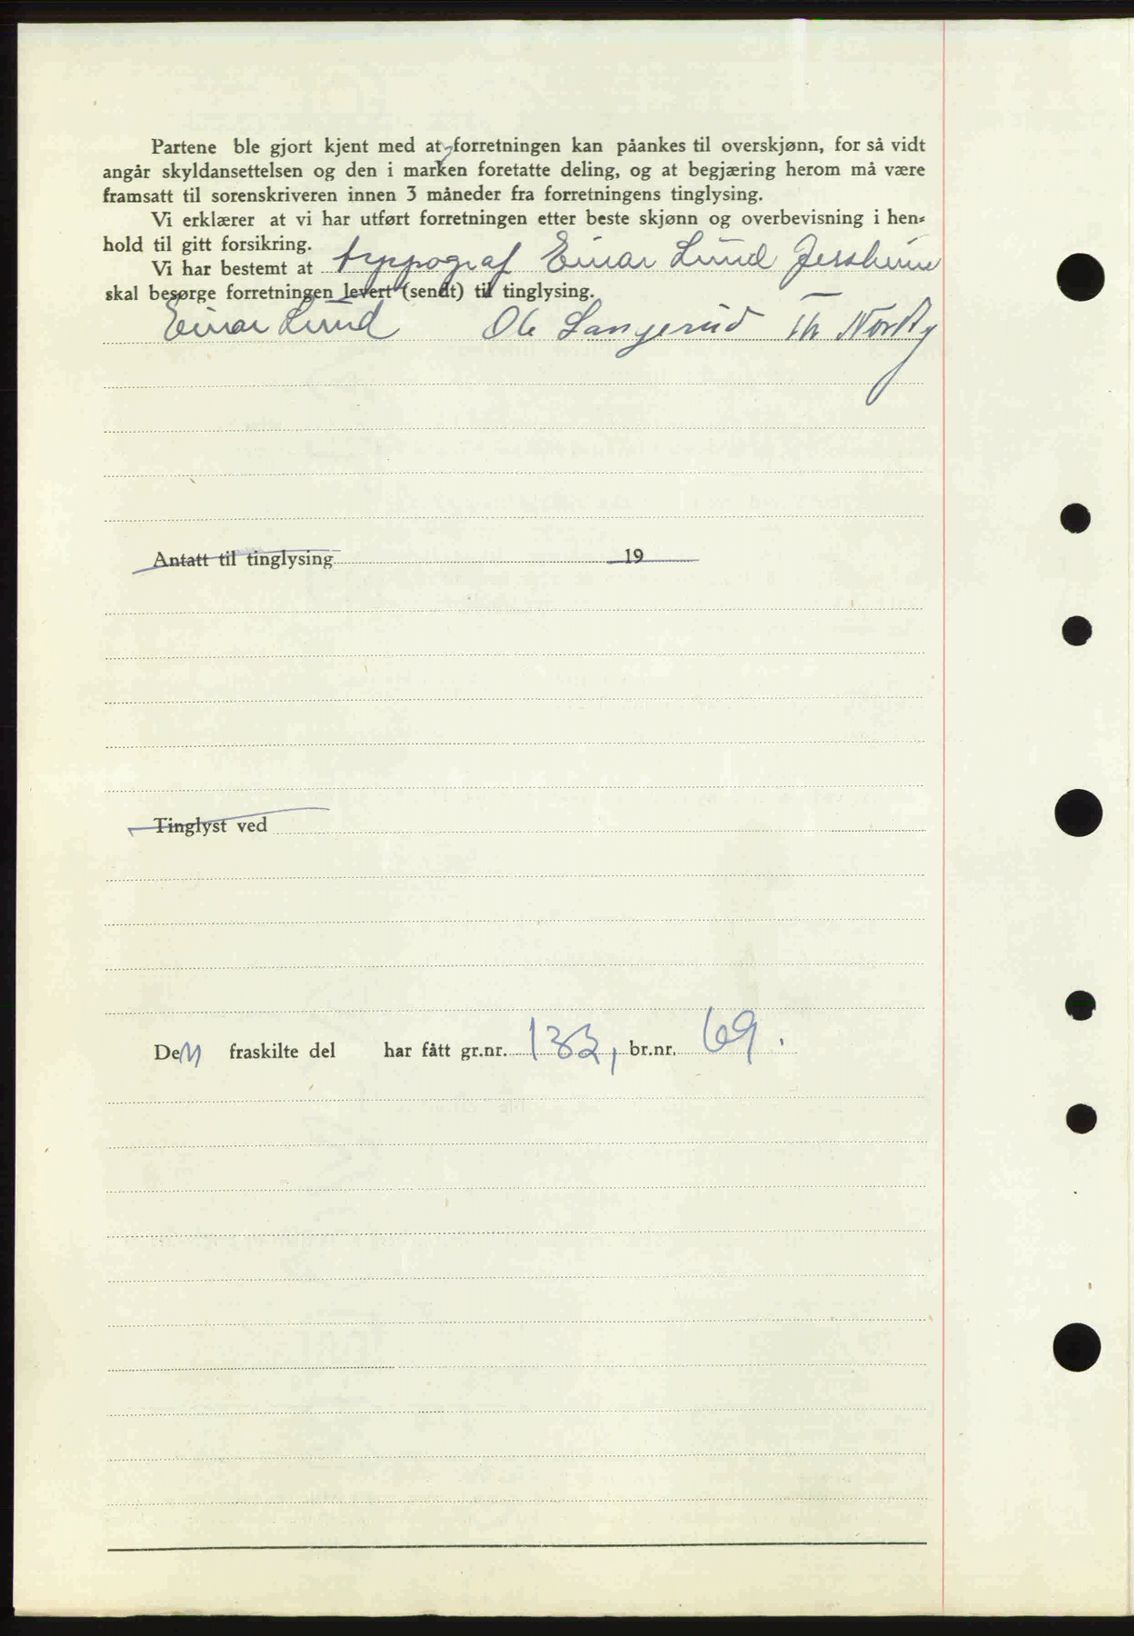 Partene ble gjort kjent med at forretningen kan påankes til overskjønn, for så vidt
angår skyldansettelsen og den i marken foretatte deling, og at begjæring herom må være
framsatt til sorenskriveren innen 3 måneder fra forretningens tinglysing.
Vi erklærer at vi har utført forretningen etter beste skjønn og overbevisning i hen-
hold til gitt forsikring.
Vi har bestemt at typpograf Einar Lund Jessheim
skal besørge forretningen levert (sendt) til tinglysing.
Einar Lund Ole Langerud Th Nordby
Antatt til tinglysing 19
Tinglyst ved
Den fraskilte del har fått gr.nr. 132, br.nr. 69.